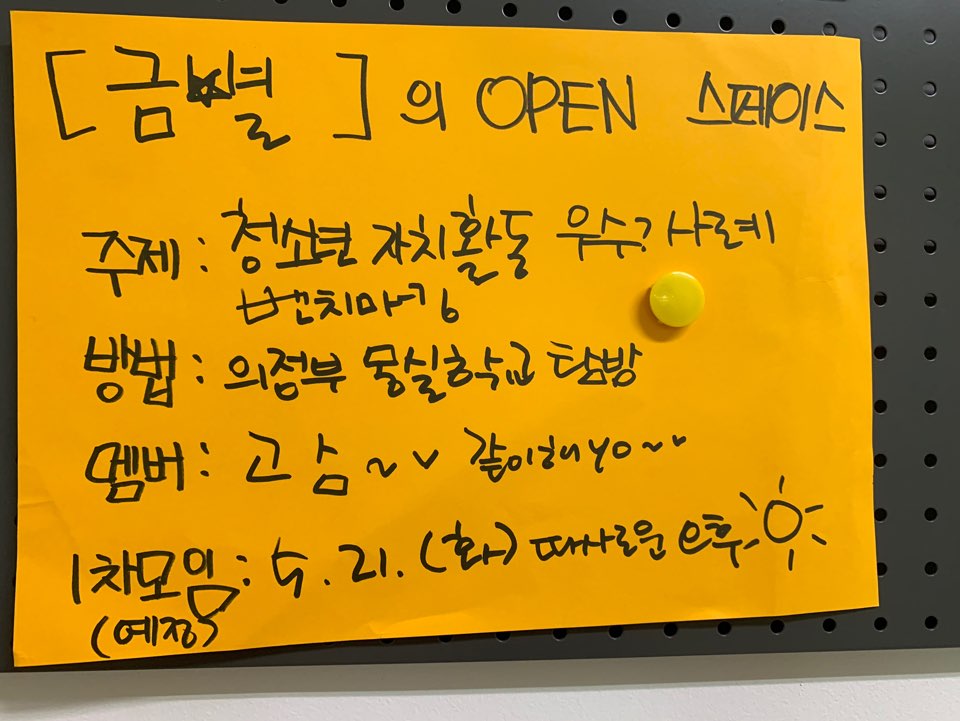 [금별]의 OPEN 스페이스
주제: 청소년 자치활동 우수 사례
벤치마킹
방법: 의정부 몽실학교 탐방
멤버: 고 슴~ 같이해yo~
1차모임: 5. 21. (화) 따사로운 오후
(예정)